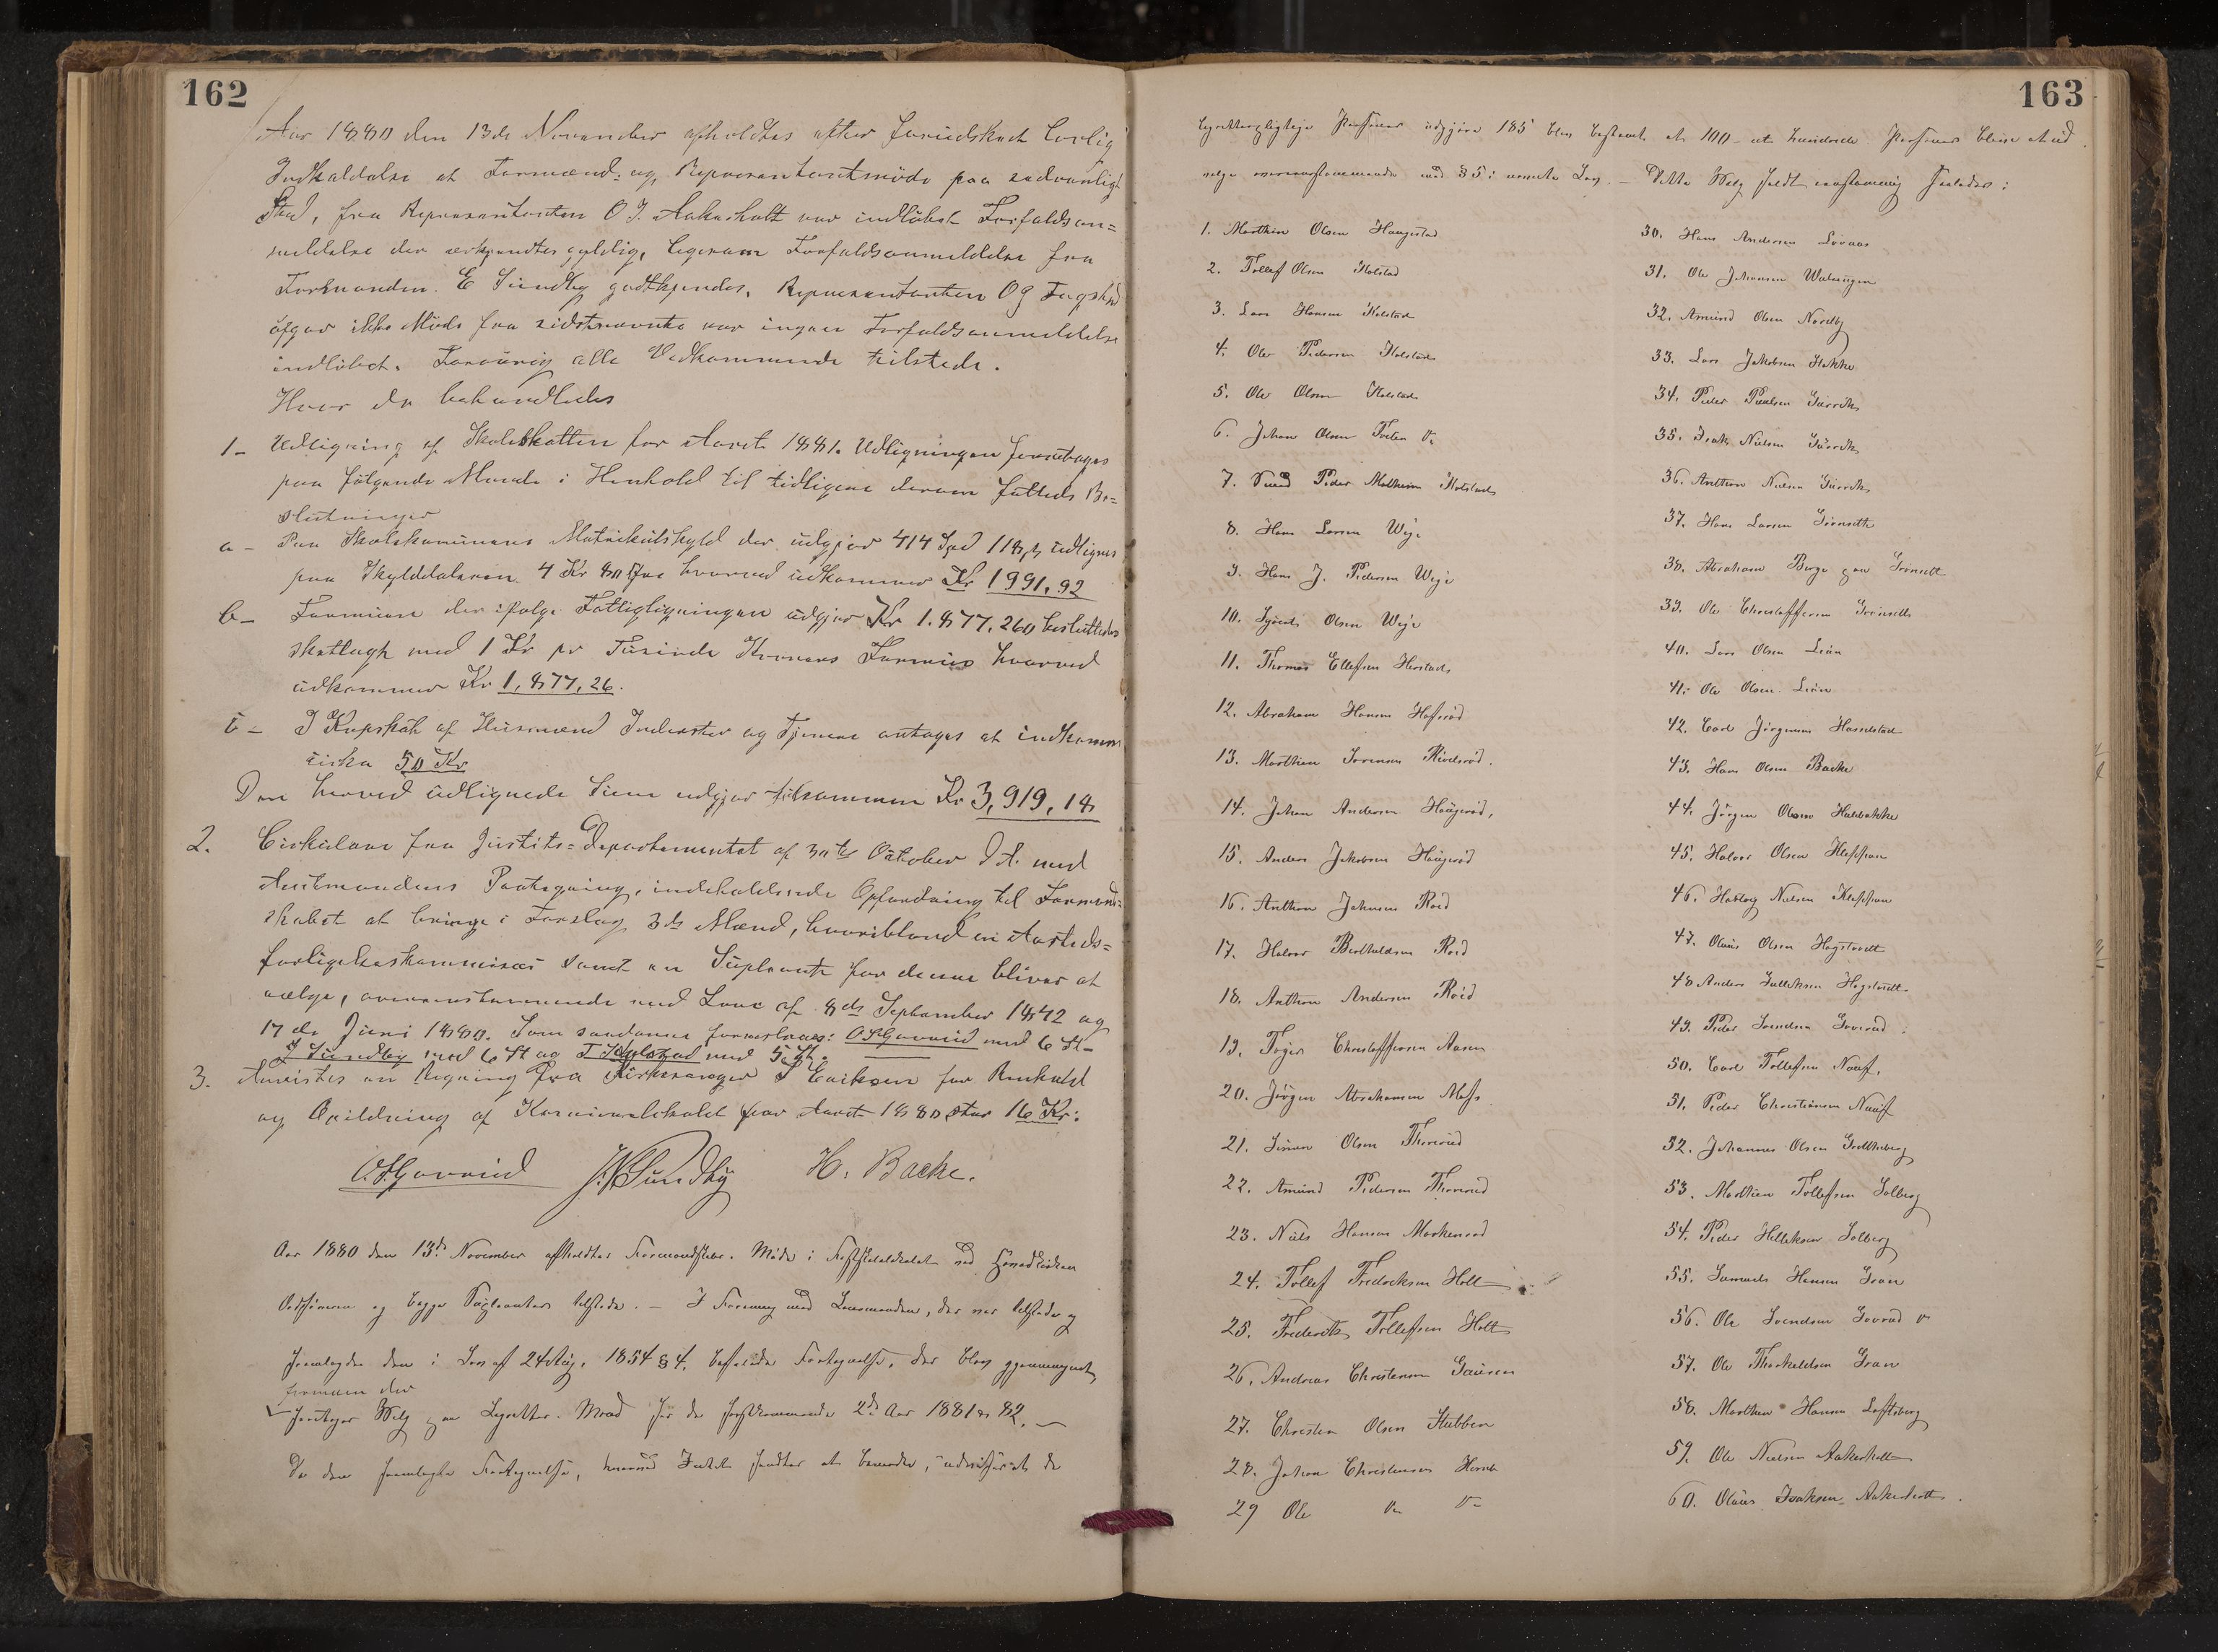 162
Aar 1880 den 13de November afholdtes efter forudskeet lovlig
Indkaldelse et Formænd- og Repræsentantmöde paa sædvanligt
Sted, fra Repræsentanten O J. Aakerholt var indlöbet Forfaldsan=
meldelse der erkjendtes gyldig, ligesom Forfaldsanmeldelse fra
Formanden E Sundby godtkjendes. Repræsentanten O G
afgav ikke Möde fra sidstnævnte var ingen Forfaldsanmeldelse
indlöbet. Foroövrig alle Vedkommende tilstede.
Hvor da behandledes
1- Udligning af Skoleskatten for Aaret 1881. Udligningen foretages
paa fölgende Maade i Henhold til tidligere derom fattede Be=
slutninger
a - Paa Skolekommunens Matrikulskyld der udgjör 414 Spd 118 s udlignes
paa Skylddaleren 4 Kr 80 Öre hvorved udkommer Kr 1991,92
b- Formuen der ifölge Fattigligningen udgjör Kr 1.877.260 besluttedes
skatlagt med 1 Kr pr Tusinde Kroners Formue hvorved
udkommer Kr 1,877,26.
c - I Kopskat af Husmænd Inderster og Tjenere antages at indkomme
cirka 50 Kr
Den herved udlignede Sum udgjör tilsammen Kr 3,919,18
2. Cirkulære fra Justits=Departementet af 30te Oktober d. A. med
Amtmandens Paategning, indeholdende Opfordring til Formand=
skabet at bringe i Forslag 3de Mænd, hvoriblandt en Aasteds=
forligelseskommissær samt en Supleant for denne bliver at
vælge, overensstemmende med Love af 8de September 1842 og
17de Juni 1880. Som saadanne foreslaaes: O. S. Gavrud med 6 St-
J Sundby med 6 St og T Holstad med 5 St.
3. Anvistes en Regning fra Kirkesanger S Eriksen for Renhold
og Opildning af Kommunelokalet for Aaret 1880 stor 16 Kr:
H. Backe.
Aar 1880 den 13de November afholdtes Formandskabs-Möde i
Ordföreren og begge Supleanter tilstede. - I Forening med Lensmanden, der var tilstede og
fremlagde den i Lov af 24 Aug. 1854 § 4. befalede Fortegnelse, der blev gjennemgaaet,
foretages Valg paa Lagrettes-Mænd for de förstkommende 2de Aar 1881 & 82. -
Da den fremlagte Fortegnelse, hvorved Intet fandtes at bemærke, udviser at de
163
lagrettespligtige Personer udgjöre 185 blev bestemt at 100 - et hundrede Personer bliver at ud
vælge overensstemmende med § 5 i nævnte Lov. - Dette Valg faldt enstemmig saaledes:
1. Marthin Olsen Haugestad
2. Tollef Olsen Holstad
3. Lars Hansen Holstad
4. Ole Pedersen Holstad
5. Ole Olsen Holstad
6. Johan Olsen
7. Peder Mathisen Holstad
8. Hans Larsen Weje
9. Hans J. Pedersen Weje
10. Olsen Weje
11. Thomas Ellefsen Herstad
12. Abraham Hansen
13. Marthin Sörensen
14. Johan Andersen Haugeröd,
15. Anders Jakobsen Haugeröd
16. Anthon Johnsen Röed
17. Halvor Bertheldsen Röed
18. Anthon Andersen Röed
19. Christoffersen Aasen
20. Jörgen Abrahamsen Moss
21. Simon Olsen Thorerud
22. Amund Pedersen Thorerud
23. Niels Hansen Markerud
24. Tollef Fredriksen Holt
25. Frederik Tollefsen Holt
26. Andreas Christensen Gausen
27. Christen Olsen Stubben
28. Johan Christensen
29 Ole do do
30. Hans Andersen Lövaas
31. Ole Johansen
32. Amund Olsen Nordby
33. Lars Jakobsen Hakke
34. Peder Paulsen
35. Isak Nielsen
36. Anthon Nielsen
37. Hans Larsen Grönsett
38. Abraham Berge paa Grönsett
39. Ole Christoffersen Grönsett
40. Lars Olsen Lian
41. Ole Olsen Lian
42. Carl Jörgensen Hasselstad
43. Hans Olsen Backe
44. Jörgen Olsen Holtbakke
45. Halvor Olsen Kleppan
46. Nielsen Kleppan
47. Olaus Olsen Hogstvedt
48 Anders Gulliksen Hogstvedt
49. Peder Svendsen Govrud
50. Carl Tollefsen Nauf.
51. Peder Christiansen Nauf
52. Johannes Olsen
53. Marthin Tollefsen Solberg
54. Peder Solberg
55. Samuel Hansen Gran
56. Ole Svendsen Govrud
57. Ole Thorkildsen Gran
58. Marthin Hansen Loftsberg
59. Ole Nielsen Aakerholt
60. Olaus Isaksen Aakerholt.